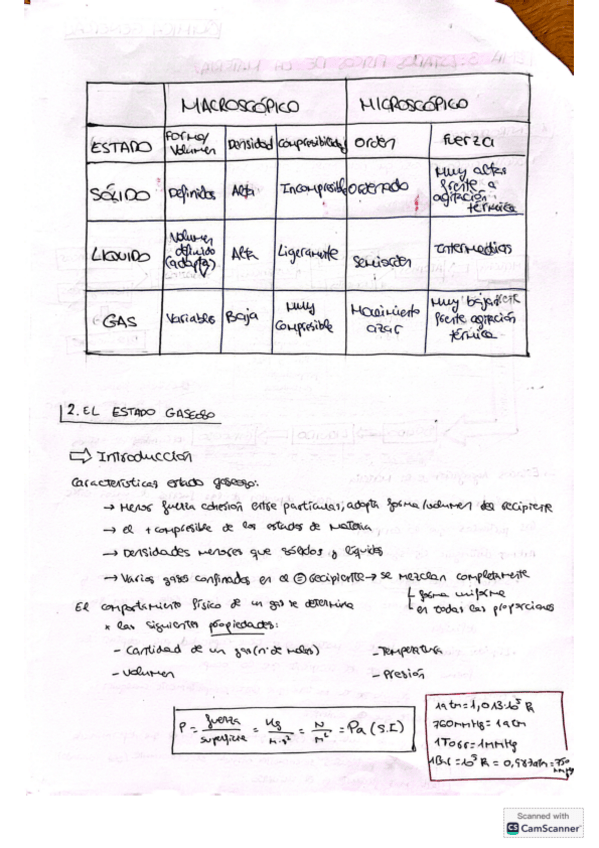 MACROSCÓPICO MICROSCÓPICO
ESTADO Forma/Volumen Densidad Compresibilidad orden fuerza
SÓLIDO Definidos Alta Incompresible Ordenado Muy altas frente a agitación térmica
LIQUIDO Volumen definido (adapta) Alta Ligeramente semiorden Intermedias
GAS Variables Baja Muy compresible Movimiento azar Muy bajas frente agitación térmica
2. EL ESTADO GASEOSO
⇒ Introducción
Características estado gaseoso:
→ Menor fuerza cohesión entre partículas, adopta forma/volumen del recipiente
→ el + compresible de los estados de materia
→ Densidades menores que sólidos y líquidos
→ Varios gases confinados en el = recipiente → se mezclan completamente
forma uniforme
en todas las proporciones
El comportamiento físico de un gas se determina
x las siguientes propiedades:
- Cantidad de un gas (nº de moles) - Temperatura
- Volumen - Presión
P = fuerza/superficie = Kg/m·s² = N/m² = Pa (S.I)
1atm = 1,013·10⁵ Pa
760mmHg = 1atm
1Torr = 1mmHg
1Bar = 10⁵ Pa = 0,987atm = 750 mmHg
Scanned with
CS CamScanner